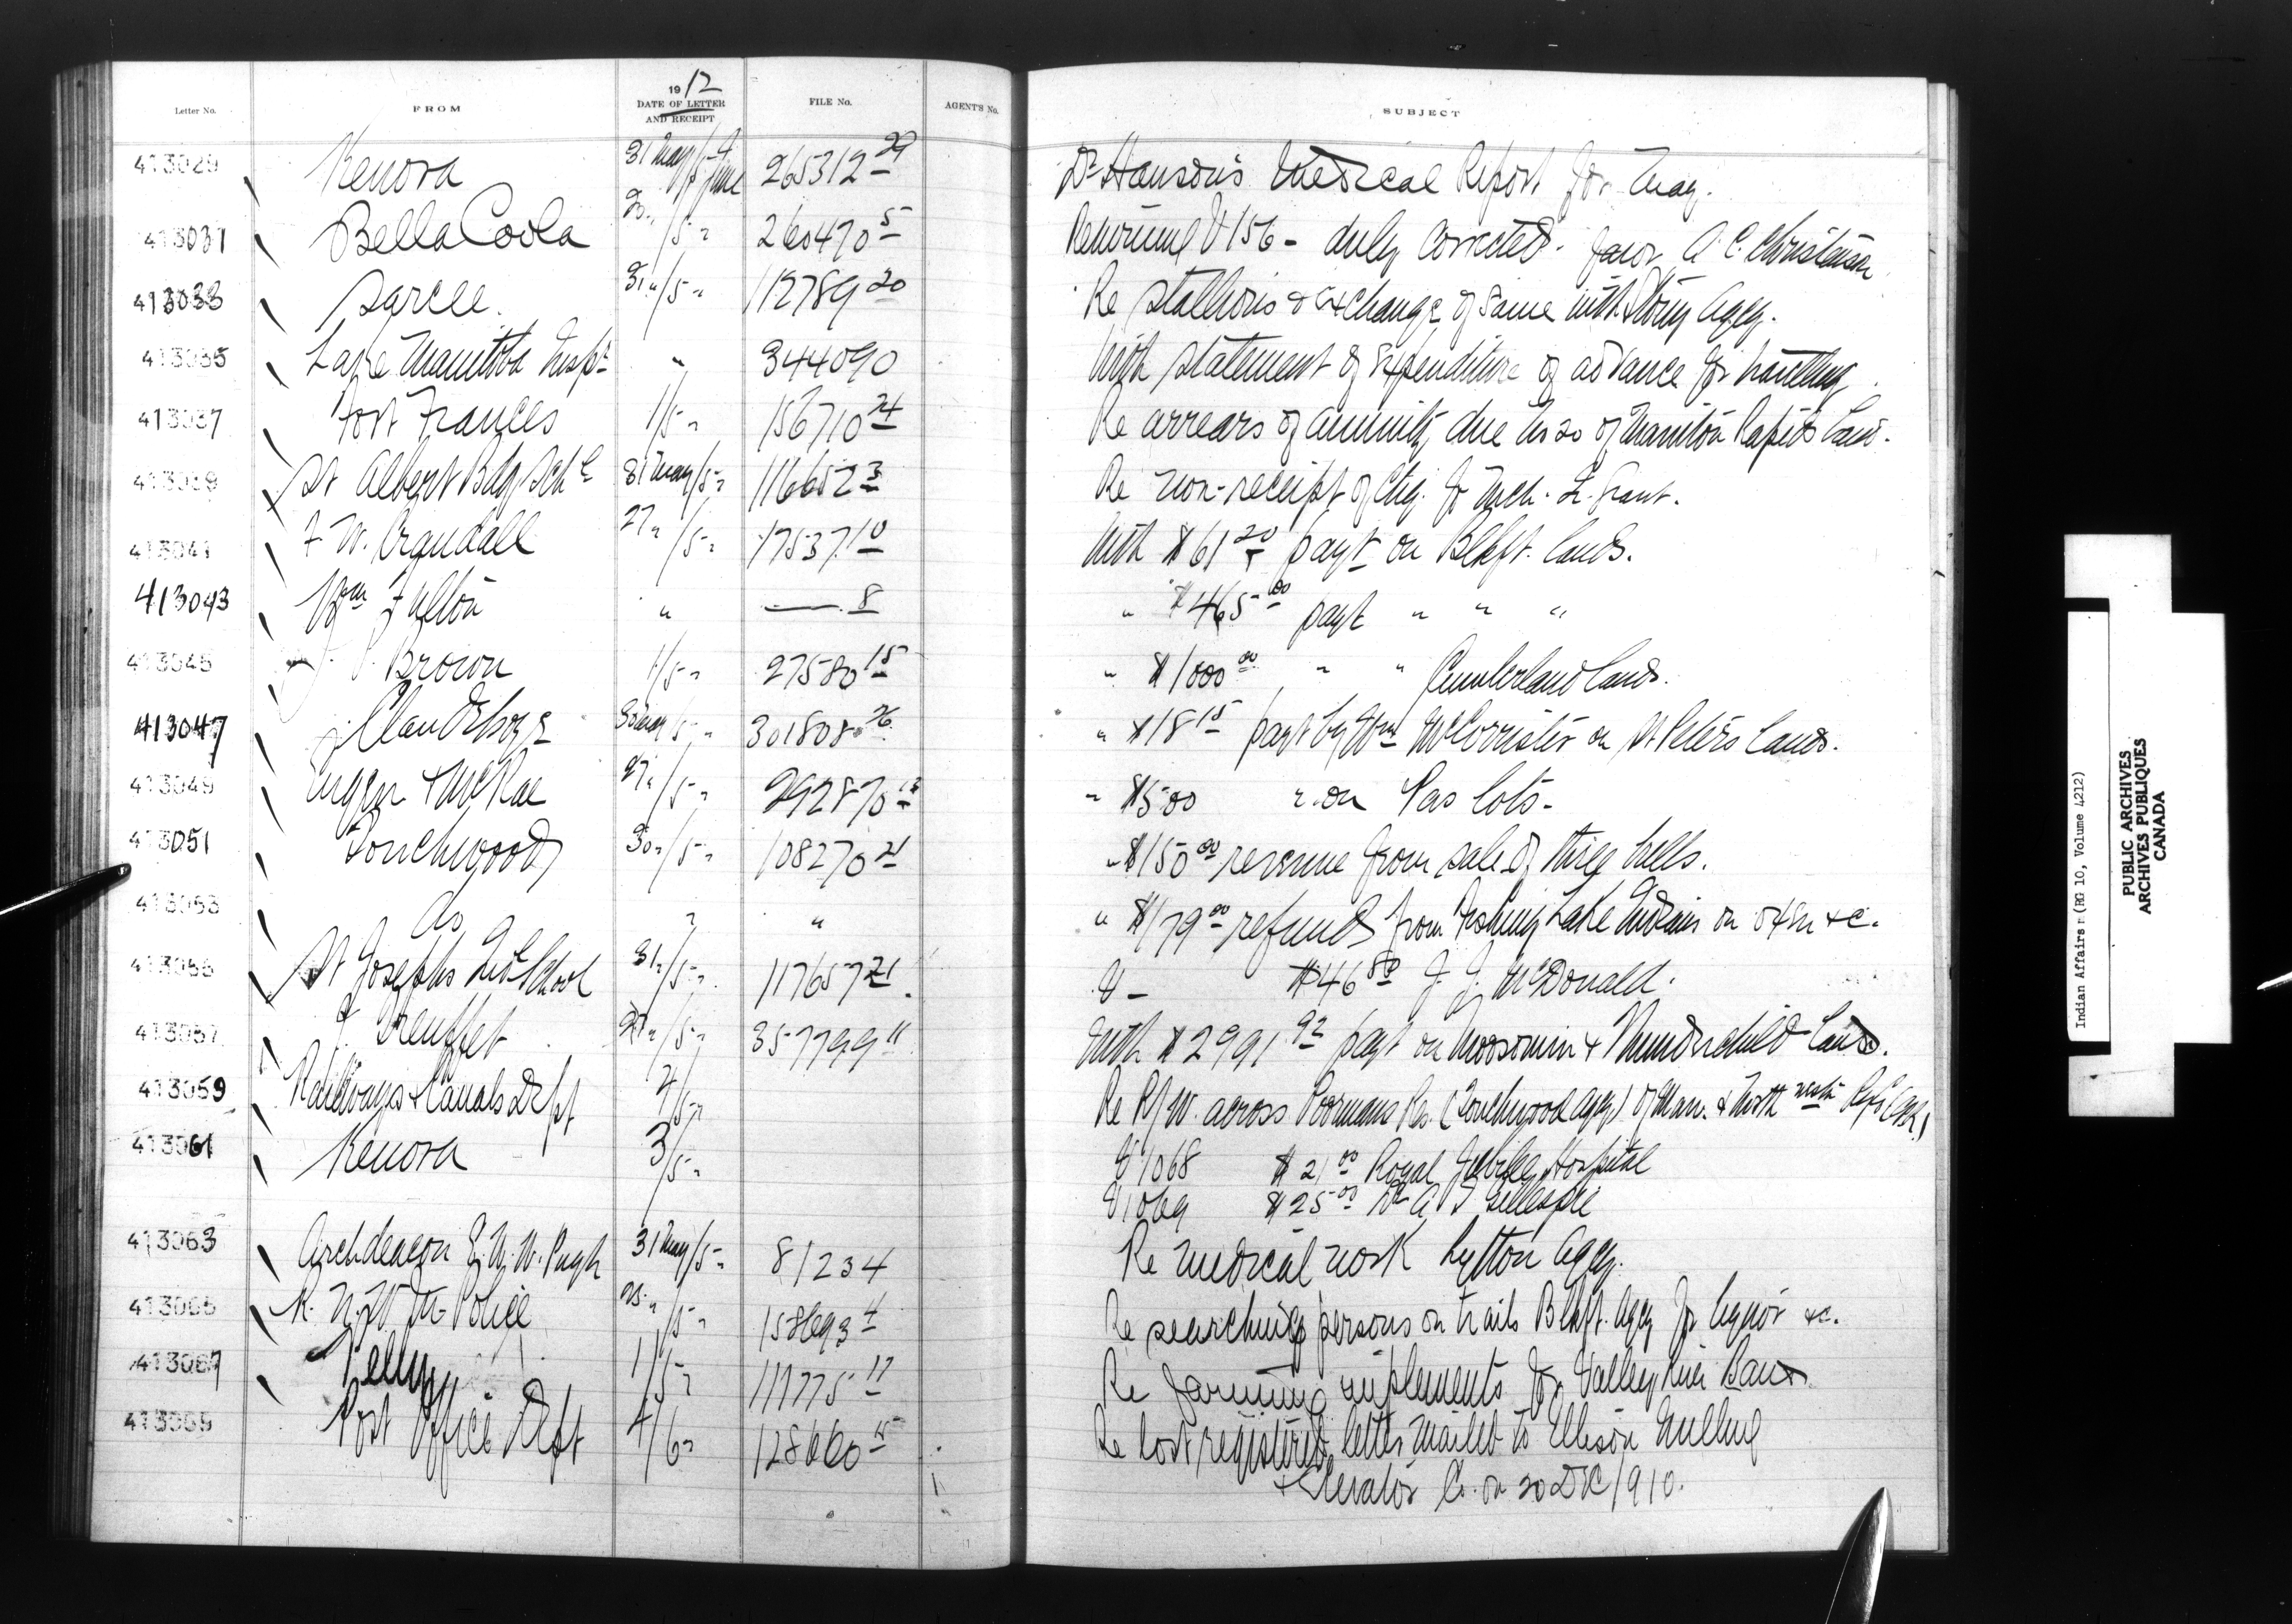 Letter No. FROM 1912 DATE OF LETTER AND RECEIPT FILE No. AGENT'S No. SUBJECT
413029 Kenora 31 May/5-4 June 265312 29 Dr Hanson's Medical Report for May.
413031 Bella Coola /5 " 260470 5 Returning V 156 - duly corrected. favor A. C. Christensen
413033 Sarcee. 31 " /5 " 112789 20 Re stallions & exchange of same with Stony Agcy.
413035 Lake Manitoba Insp " 344090 With statement of expenditure of advance for travelling
413037 Fort Frances 1/5 " 156710 24 Re arrears of annuity due No 20 of Manitou Rapids Band.
413039 St Albert Bdg Sch 31 May/5 " 116652 3 Re non-receipt of chq. for Mch. Qr. Grant.
413041 F. W. Crandall 27 " /5 " 17537 10 With $61 20 payt on Blkft. lands.
413043 Wm Fulton " — 8 " $465 00 payt " " "
413045 Brown 1/5 " 27580 15 " $1000 00 " " Cumberland lands.
413047 J. Clandeboye 30 May/5 " 301808 26 " $18 15 payt by Wm McCorrister on St Peters lands.
413049 & McRae 27 " /5 " 292870 13 " $500 " on Pas lots.
413051 Touchwood 30 " /5 " 108270 21 " $150 00 revenue from sale of three bulls.
413053 do " " " $179 00 refunds from Fishing Lake Indians on oxen &c.
413055 St Josephs Ind School 31 " /5 " 117657 21 V - $46 80 J. J. McDonald.
413057 /5 " 357799 11 With $2991 92 payt on Moosomin & Thunderchild lands.
413059 Railways & Canals Dept 4/5 " Re R/W. across Poormans Res. (Touchwood Agcy) of Man. & North Westn Ry Co
413061 Kenora 3/5 " V 1068 $21 00 Royal Jubilee Hospital
V 1069 $25 00 Dr A T Gillespie
413063 Archdeacon E. W. W. Pugh 31 May/5 " 81234 Re medical work Lytton Agcy.
413065 R. N. W. M. Police 25 " /5 " 158693 4 Re searching persons on trails Blkft. Agcy for liquor &c.
413067 Pelly 1/5 " 111775 17 Re farming implements for Valley River Band
413069 Post Office Dept 4/6 " 128660 15 Re lost registered letter mailed to Ellison Milling
& Elevator Co. on 20 Dec/1910.
Indian Affairs: (RG 10, Volume 4212)
PUBLIC ARCHIVES
ARCHIVES PUBLIQUES
CANADA